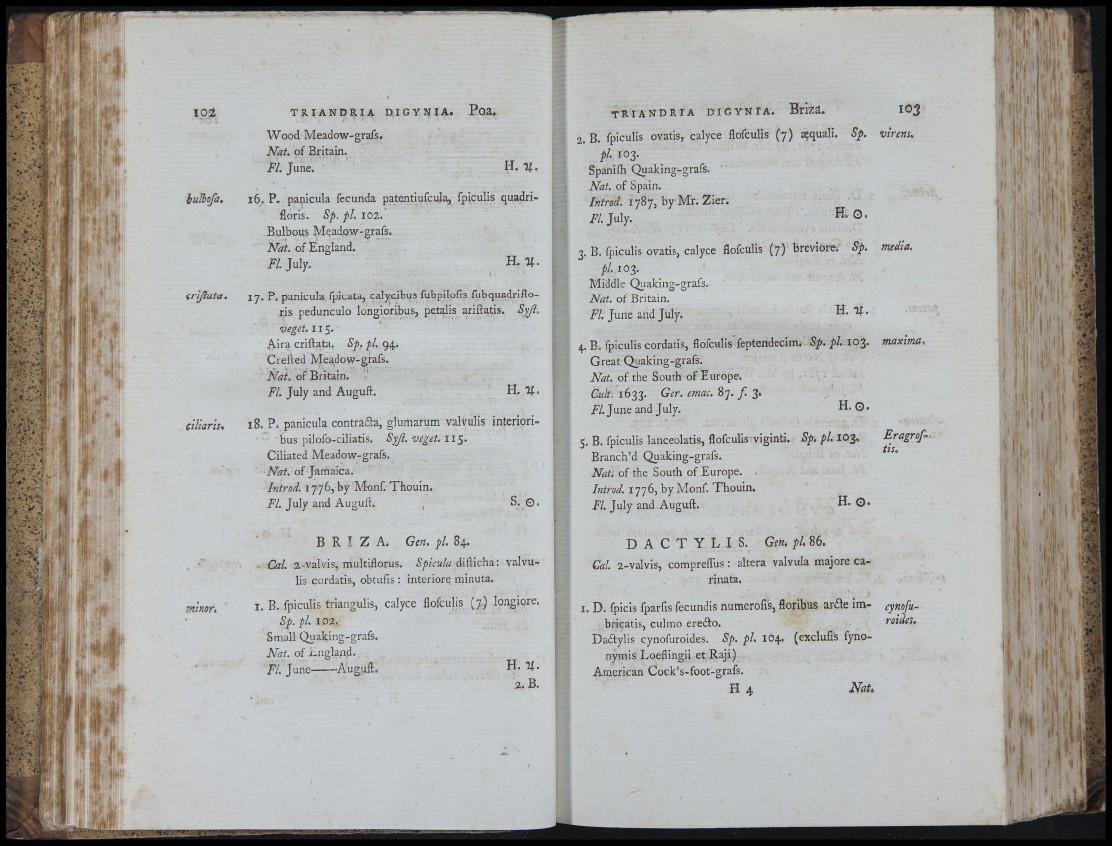 102 TRIANDRIA DIGYNIA. Poa.
Wood Meadow-graſs.
Nat. of Britain.
Fl. June. H. ♃.
bulboſa. 16. P. panicula ſecunda patentiuſcula, ſpiculis quadri-
floris. Sp. pl. 102.
Bulbous Meadow-graſs.
Nat. of England.
Fl. July. H. ♃.
criſtata. 17. P. panicula ſpicata, calycibus ſubpiloſis ſubquadriflo-
ris pedunculo longioribus, petalis ariſtatis. Syſt.
veget. 115.
Aira criſtata. Sp. pl. 94.
Creſted Meadow-graſs.
Nat. of Britain.
Fl. July and Auguſt. H. ♃.
ciliaris. 18. P. panicula contracta, glumarum valvulis interiori-
bus piloſo-ciliatis. Syſt. veget. 115.
Ciliated Meadow-graſs.
Nat. of Jamaica.
Introd. 1776, by Monſ. Thouin.
Fl. July and Auguſt. S. ☉.
BRIZA. Gen. pl. 84.
Cal. 2-valvis, multiflorus. Spicula diſticha: valvu-
lis cordatis, obtuſis: interiore minuta.
minor. 1. B. ſpiculis triangulis, calyce floſculis (7) longiore.
Sp. pl. 102.
Small Quaking-graſs.
Nat. of England.
Fl. June——Auguſt. H. ♃.
2. B.
TRIANDRIA DIGYNIA. Briza. 103
2. B. ſpiculis ovatis, calyce floſculis (7) æquali. Sp. virens.
pl. 103.
Spaniſh Quaking-graſs.
Nat. of Spain.
Introd. 1787, by Mr. Zier.
Fl. July. H. ☉.
3. B. ſpiculis ovatis, calyce floſculis (7) breviore. Sp. media.
pl. 103.
Middle Quaking-graſs.
Nat. of Britain.
Fl. June and July. H. ♃.
4. B. ſpiculis cordatis, floſculis ſeptendecim. Sp. pl. 103. maxima.
Great Quaking-graſs.
Nat. of the South of Europe.
Cult. 1633. Ger. emac. 87. f. 3.
Fl. June and July. H. ☉.
5. B. ſpiculis lanceolatis, floſculis viginti. Sp. pl. 103. Eragroſ-
tis.
Branch'd Quaking-graſs.
Nat. of the South of Europe.
Introd. 1776, by Monſ. Thouin.
Fl. July and Auguſt. H. ☉.
DACTYLIS. Gen. pl. 86.
Cal. 2-valvis, compreſſus: altera valvula majore ca-
rinata.
1. D. ſpicis ſparſis ſecundis numeroſis, floribus arcte im- cynoſu-
bricatis, culmo erecto. roides.
Dactylis cynoſuroides. Sp. pl. 104. (excluſis ſyno-
nymis Loeflingii et Raji)
American Cock's-foot-graſs.
H 4 Nat.